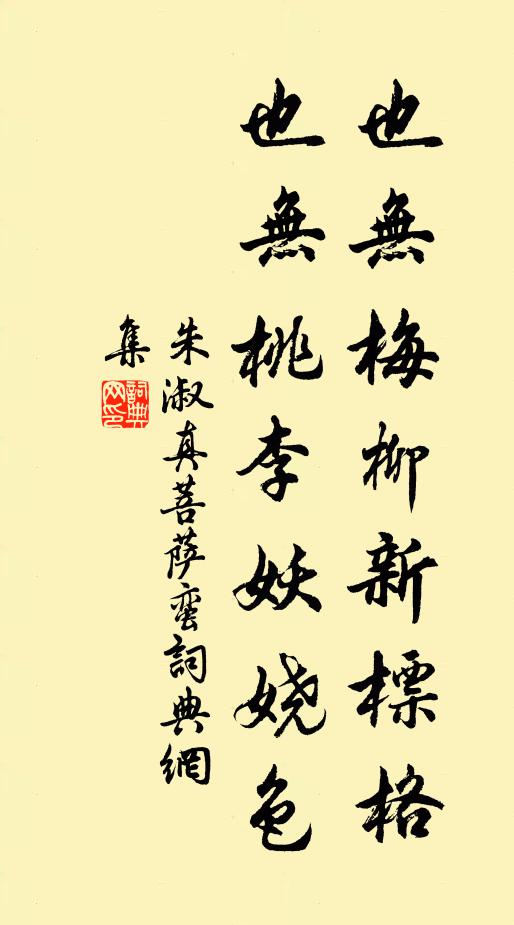 也無梅柳新標格
也無桃李妖娆色
朱淑真菩萨蛮詞典網
集
詞典網印